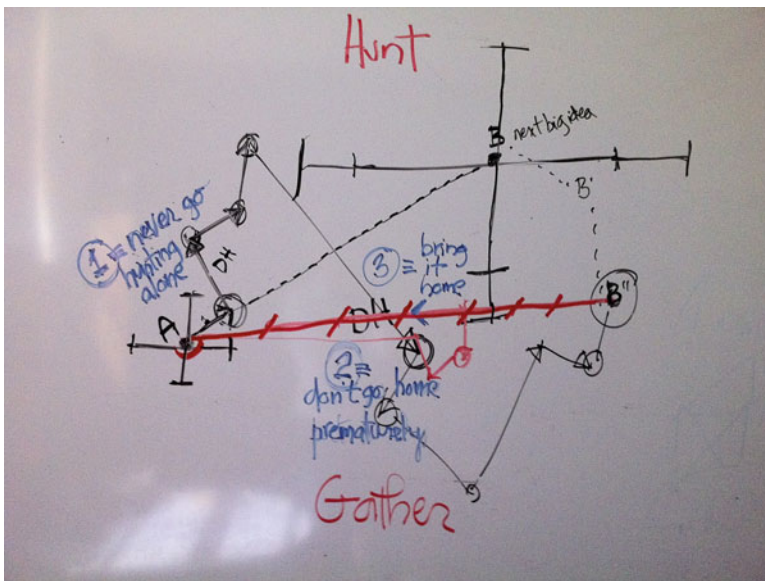 Hunt
B next big idea
B'
1 ≡ never go
hunting
alone
DH
3 ≡ bring
it
home
A
DH
B''
2 ≡
don't go home
prematurely
Gather